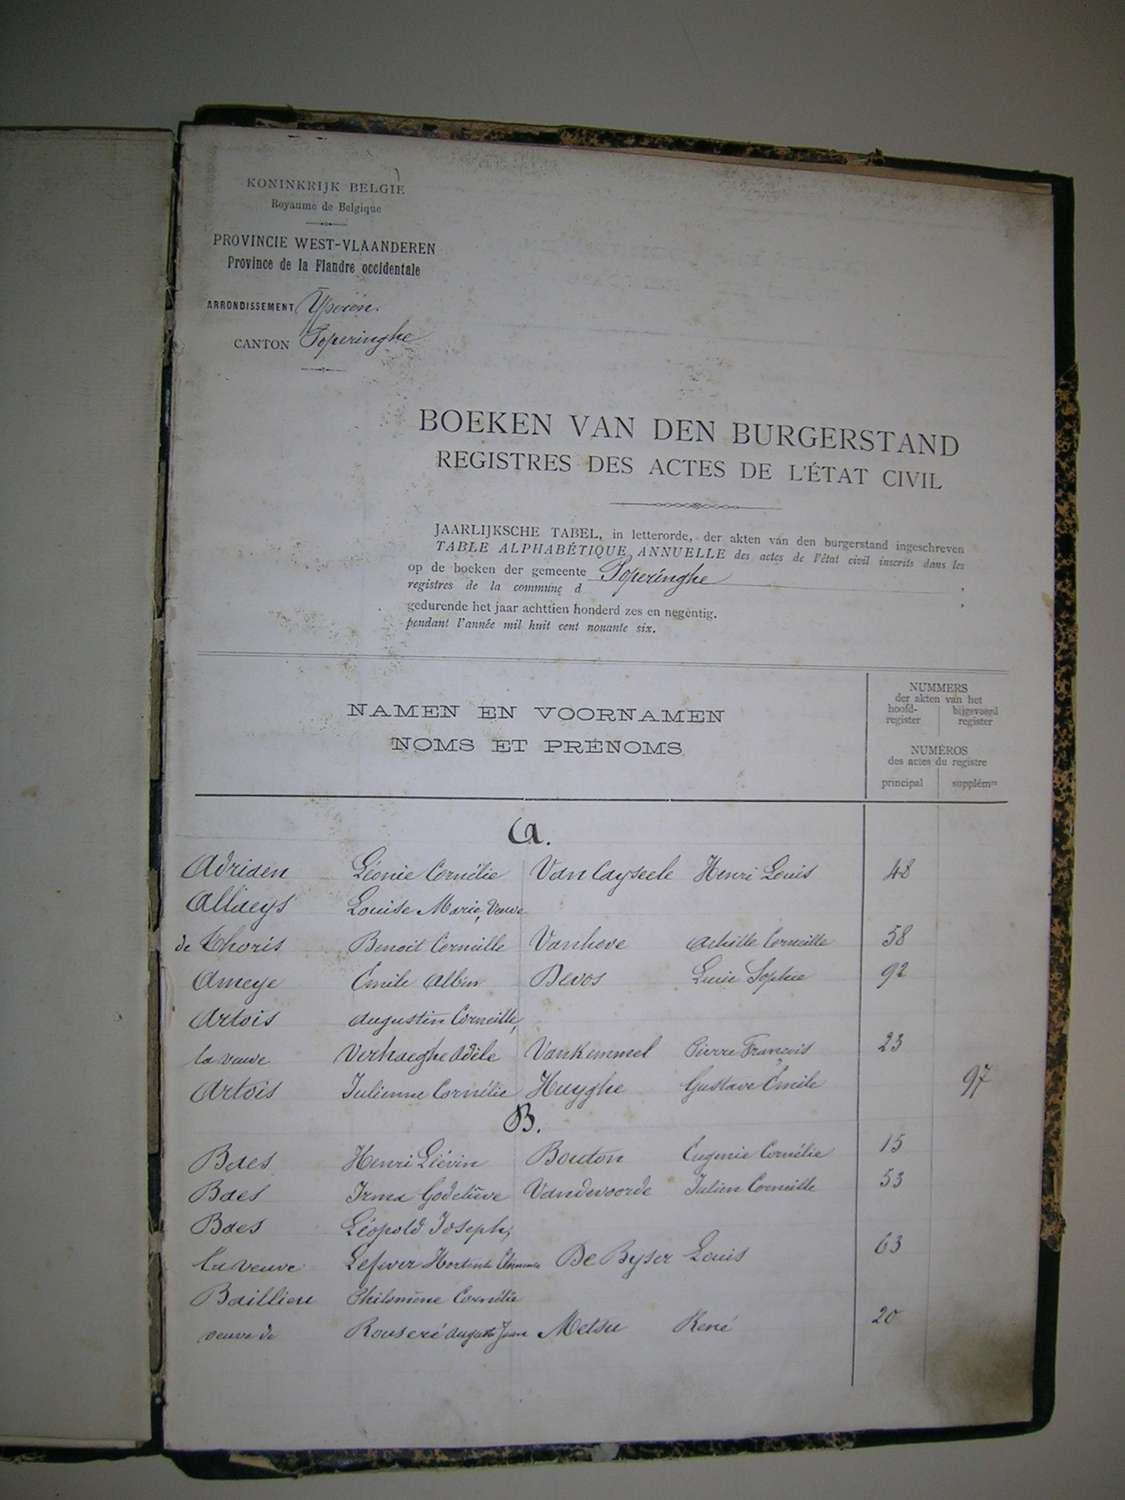 KONINKRIJK BELGIE
Royaume de Belgique
PROVINCIE WEST-VLAANDEREN
Province de la Flandre occidentale
ARRONDISSEMENT Yperen.
CANTON Poperinghe
BOEKEN VAN DEN BURGERSTAND
REGISTRES DES ACTES DE L'ÉTAT CIVIL
JAARLIJKSCHE TABEL, in letterorde, der akten van den burgerstand ingeschreven
TABLE ALPHABÉTIQUE ANNUELLE des actes de l'état civil inscrits dans les
op de boeken der gemeente Poperinghe
registres de la commune d
gedurende het jaar achttien honderd zes en negentig.
pendant l'année mil huit cent nonante six.
NAMEN EN VOORNAMEN
NOMS ET PRÉNOMS
NUMMERS
der akten van het
hoofd-register
bijgevoegd register
NUMÉROS
des actes du registre
principal supplémre
A.
Adriaen Léonie Cornélie Van Cayseele Henri Louis 48
Allaeys Louise Marie, Veuve
de Thoris Benoit Corneille Vanhove Achille Corneille 58
Ameye Emile Albin Devos Lucie Sophie 92
Artois Augustin Corneille,
la veuve Verhaeghe Adèle Vankemmel Pierre François 23
Artois Julienne Cornélie Huyghe Gustave Émile 97
B.
Baes Henri Liévin Bouton Eugenie Cornélie 15
Baes Irma Godelieve Vandevoorde Julien Corneille 53
Baes Léopold Joseph,
la veuve Lefever Hortense De Byser Louis 63
Baillieu Philomène Cornélie
veuve de Rouseré Auguste Jean Metsu René 20